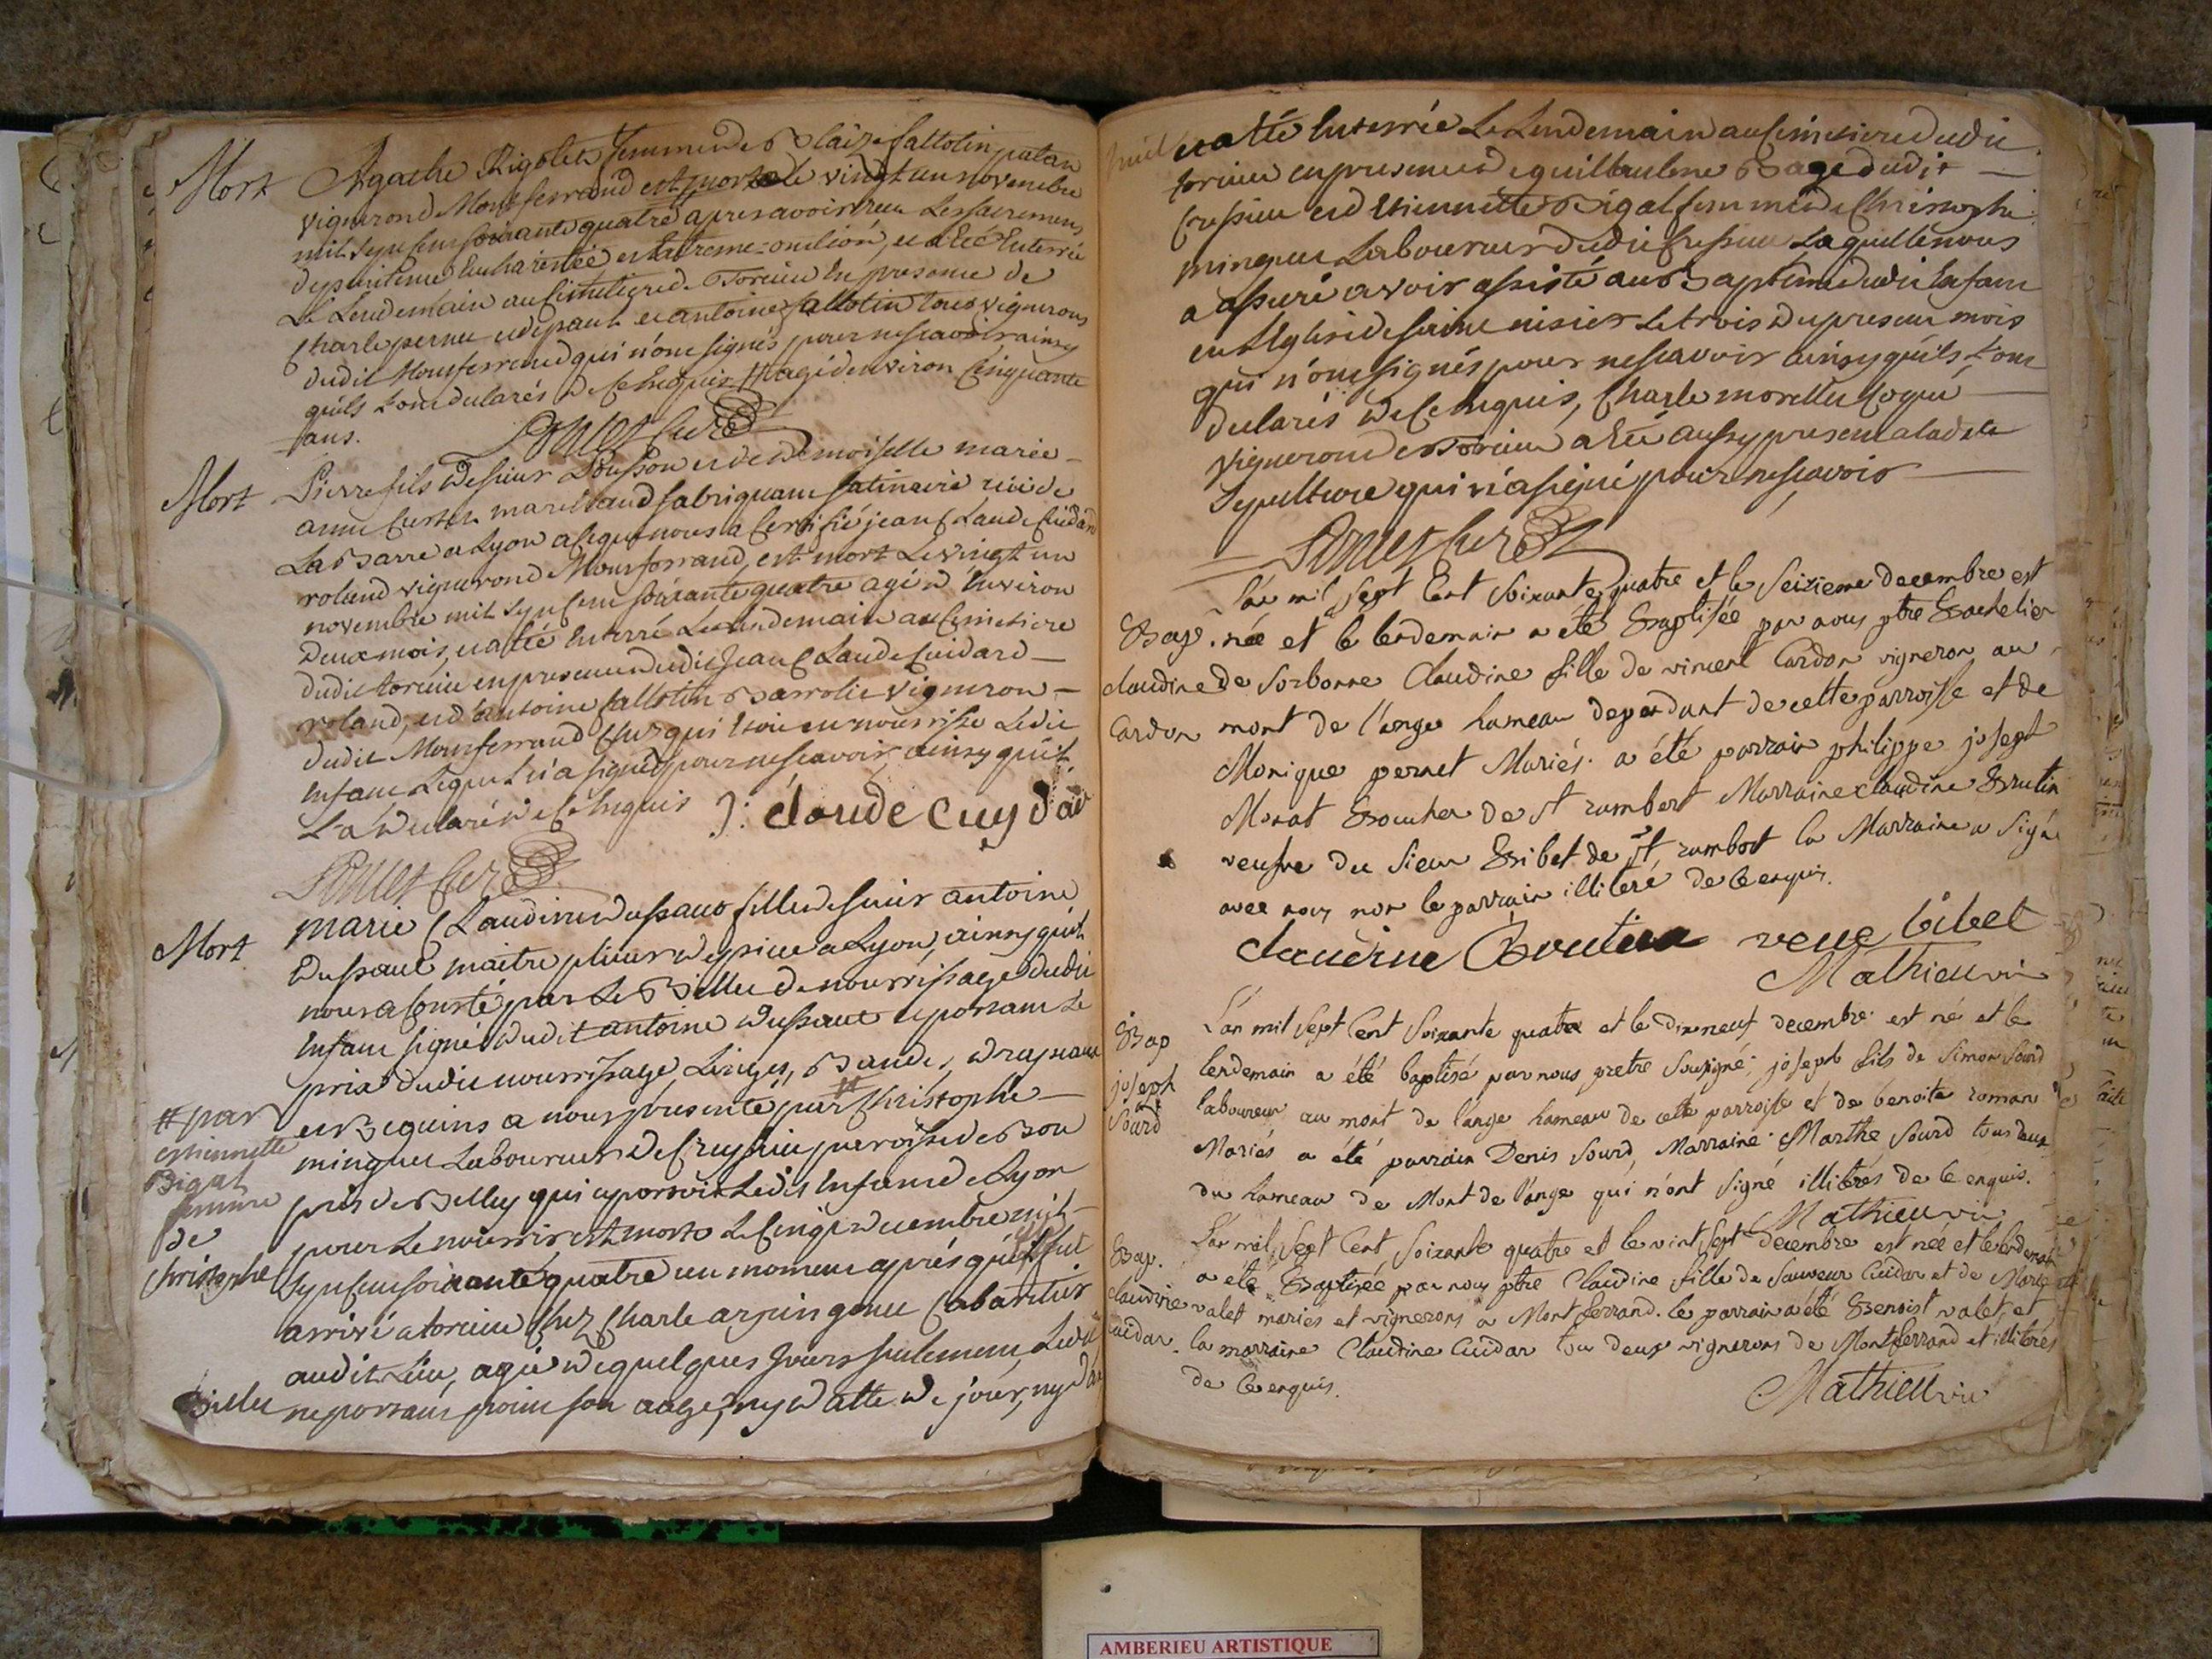 Mort
Agathe Rigolet femme de Blaize fallotin patan
vigneron de Montferrand est morte le vingt un novembre
mil sept cent soixante quatre apres avoir reçu les sacremens
de penitence Eucharistie et Extreme-onction, et a Eté Enterrée
Le Lendemain au Cimetiere de Torcieu En presence de
Charle pernet et de paul et antoine fallotin tous vignerons
dudit Montferrand qui n'ont signés pour ne scavoir ainsy
qu'ils L'ont declarés de ce Enquis # agé d'environ Cinquante
ans.
Curé
Mort
Pierre fils de sieur et de demoiselle marie
anne fabriquant satinaire rue de
La Barre a Lyon a ce que nous a Certifié jean Claude Cuidard
roland vigneron de Montferrand, est mort Le vingt un
novembre mil sept cent soixante quatre agé d'Environ
Deux mois, et a Eté Enterré Le Lendemain au Cimetiere
dudit torcieu en presence dudit Jean Claude Cuidard
roland, et d'antoine fallotin vigneron
dudit Montferrand Chez qui Etoit en nourrisse Ledit
Enfant Lequel n'a signé pour ne scavoir ainsy qu'il
L'a declaré de Ce Enquis J: claude cuydar
Curé
Mort
marie Claudine dussaut fille de sieur antoine
Dussaut maitre plieur de a Lyon, ainsy qu'il
nous a Consté par Le Billet de nourrissage dudit
Enfant signé dudit antoine Dussaut et portant Le
prix dudit nourrissage, Linges, Bandes, drapeaux
et Beguins a nous presenté par # Christophe
minguet Laboureur de Creyssieu paroisse de
pres de Belley qui aportoit Ledit Enfant de Lyon
pour Le nourrir est morte Le Cinq decembre mil
sept Cent soixante quatre un moment après qu'elle fut
arrivé a torcieu Chez Charle Cabaretier
audit Lieu, agée de quelques Jours seulement, Ledit
Billet ne portant point son aage, ny datte de jour, ny d'an
# par
estiennette
Bigal
femme
de
Christophe
et a Eté Enterrée Le Lendemain au Cimetiere dudit
torcieu en presence de guillaulme Bage dudit
Cressieu et d'Etiennette Bigal femme de Christophe
minguet Laboureur dudit Cressieu Laquelle nous
a assuré avoir assisté au Baptême dudit Enfant
en L'Eglise de saint nisier Le trois du present mois
qui n'ont signés pour ne scavoir ainsy qu'ils L'ont
declarés de Ce Enquis, Charle morellet
vigneron de Torcieu a Eté aussy present a la dite
sepulture qui n'a signé pour ne scavoir
Curé
Bap.
claudine
Cardon
L'an mil sept Cent soixante quatre et le seizieme decembre est
née et le lendemain a été Baptisée par nous ptre Bachelier
de Sorbonne Claudine fille de vincent Cardon vigneron au
mont de l'ange hameau dependant de cette parroisse et de
Monique pernet Mariés. a été parrain philippe joseph
Monat Boucher de St rambert Marraine claudine Brutin
veufve du sieur Bribet de St. rambert la Marraine a signé
avec nous non le parrain illiteré de ce enquis.
claudine Boutin veue bibet
Mathieu vic
Bap
joseph
Sourd
L'an mil sept Cent soixante quatre et le dix neuf decembre est né et le
lendemain a été baptisé par nous pretre soussigné; joseph fils de simon Sourd
laboureur au mont de l'ange hameau de cette parroisse et de benoite roman
Mariés a été parrain Denis Sourd, Marraine Marthe Sourd tous deux
du hameau de Mont de l'ange qui n'ont signé illiterés de ce enquis.
Mathieu vic
Bap.
claudine
cuidar.
L'an mil sept Cent soixante quatre et le vint sept decembre est née et le lendemain
a été Baptisée par nous ptre Claudine fille de sauveur Cuidar et de Marie
valet mariés et vignerons a Montferrand. le parrain a été Benoist valet, et
la marraine Claudine Cuidar tou deux vignerons de Montferrand et illiterés
de ce enquis.
Mathieu vic
AMBERIEU ARTISTIQUE